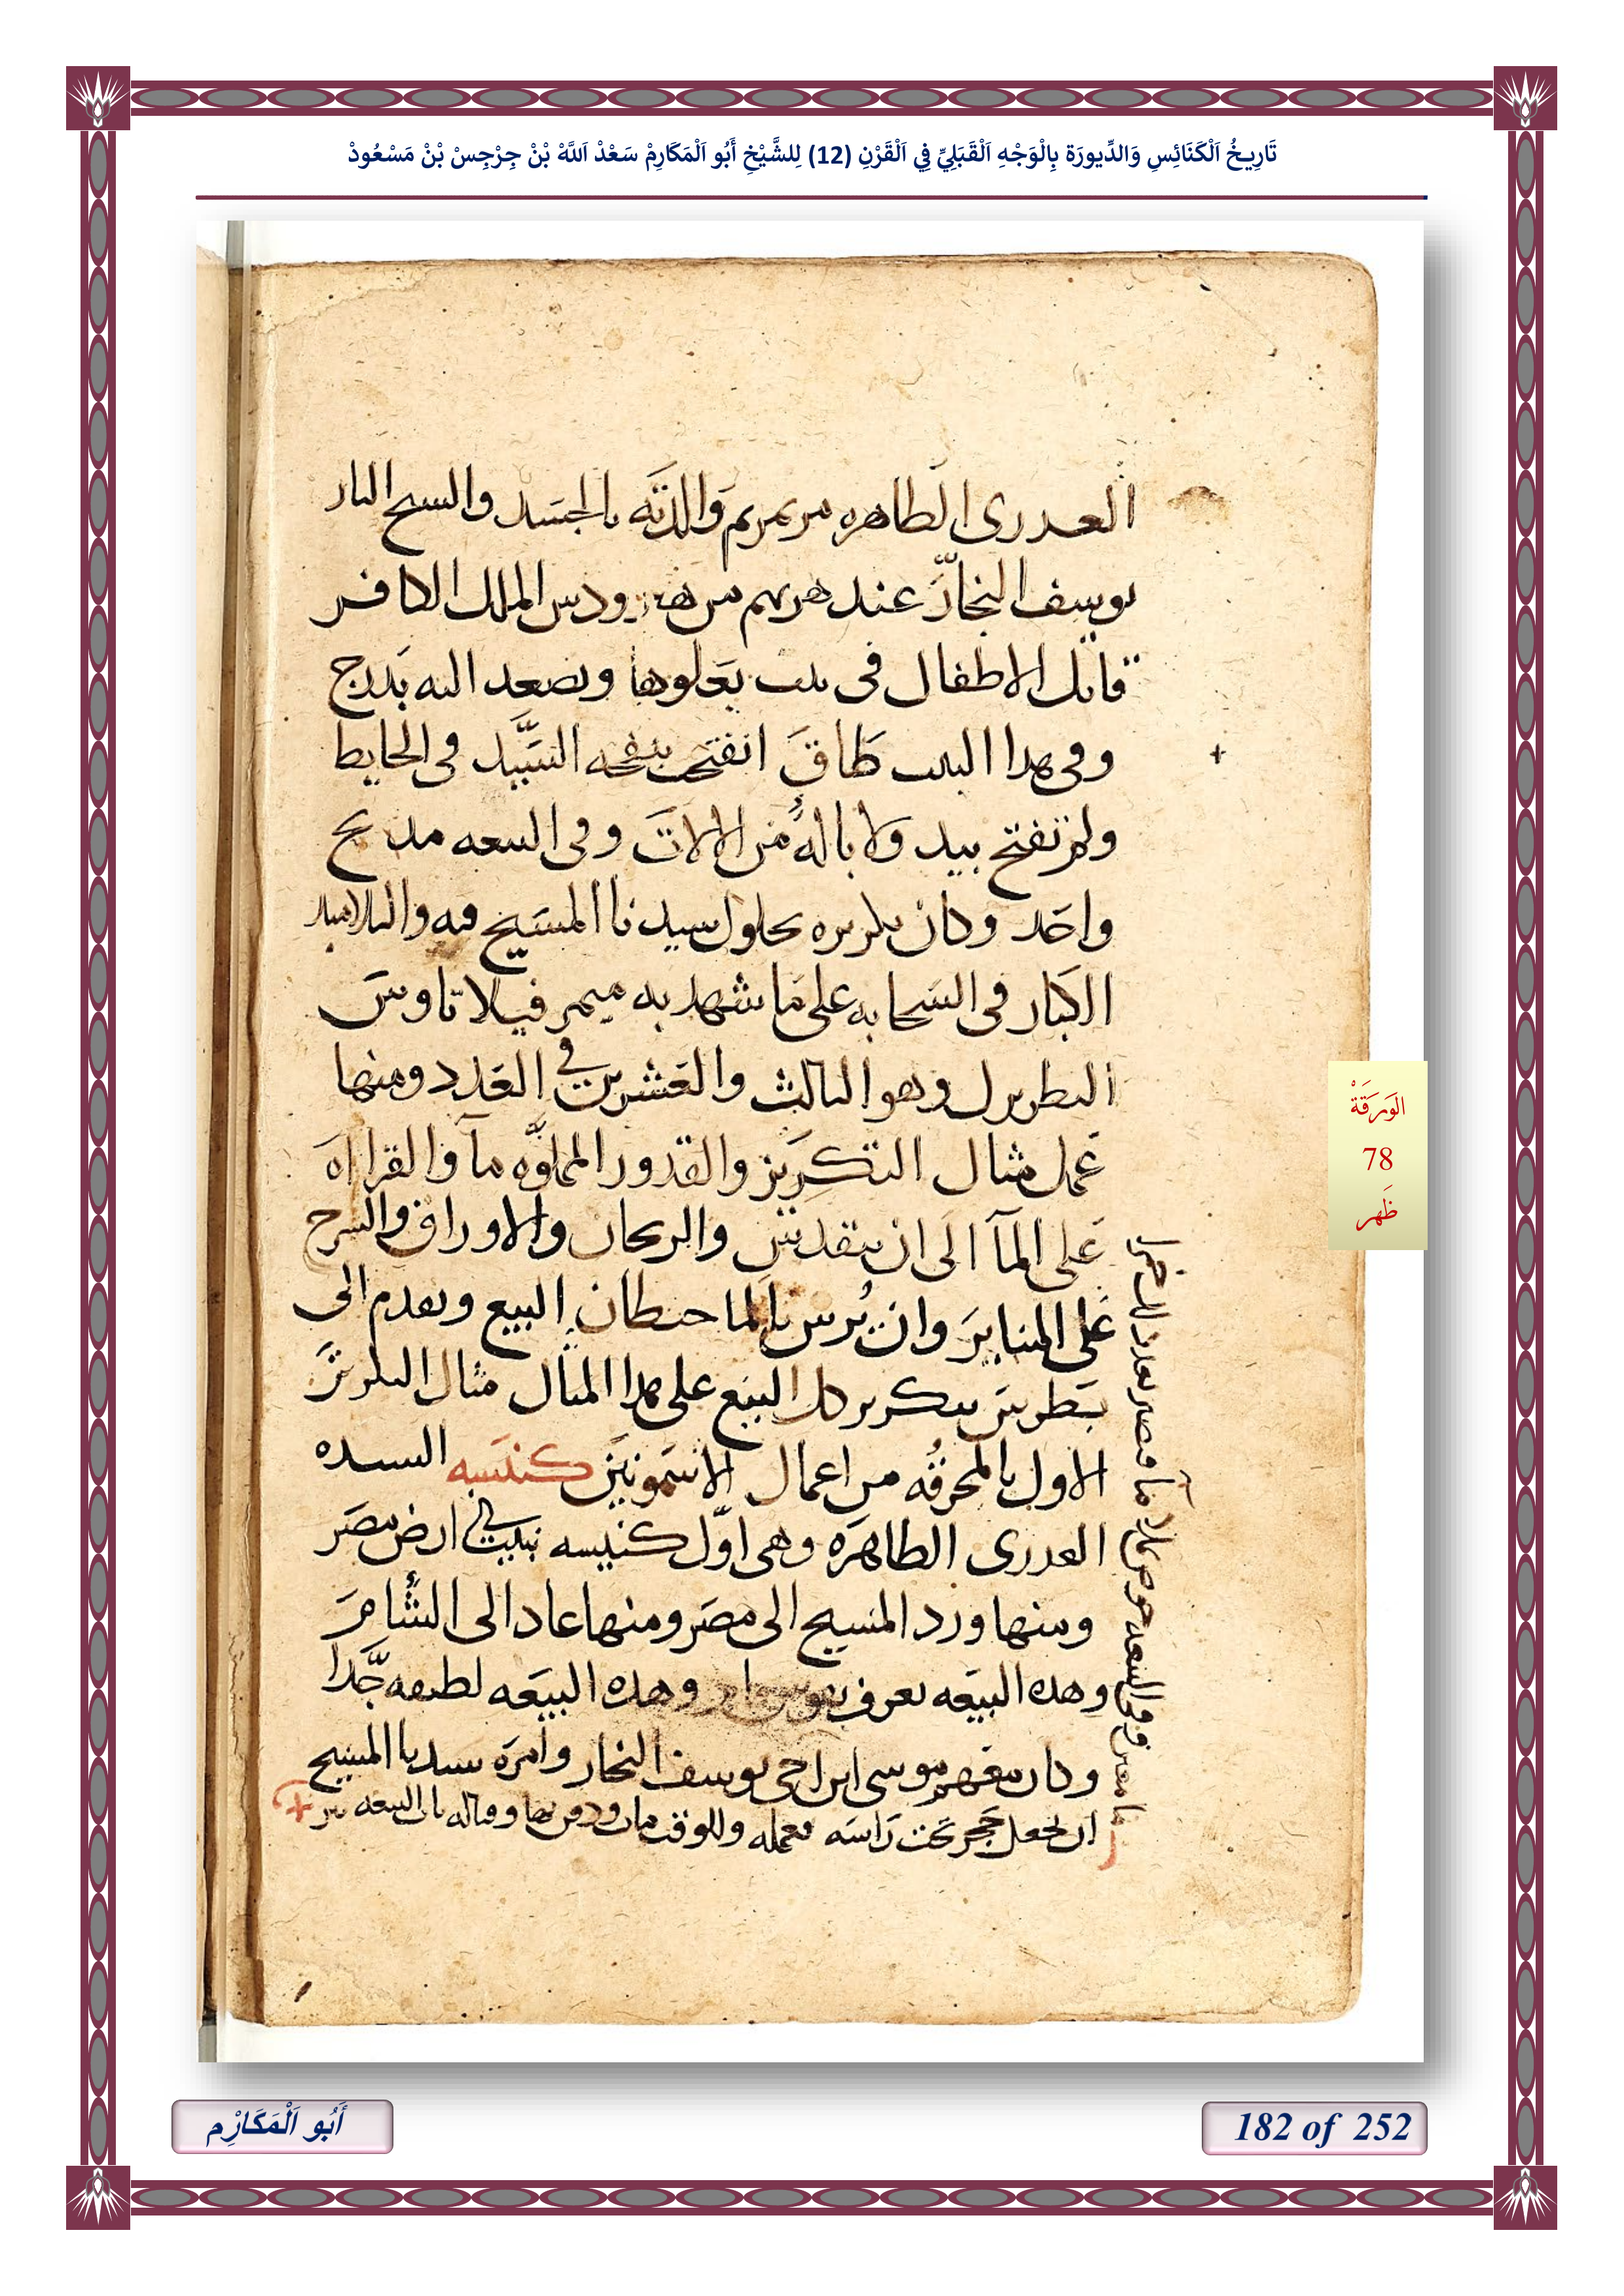 تَارِيخُ اَلْكَنَائِسِ وَالدِّيورَة بِالْوَجْهِ اَلْقَبَلِيِّ فِي اَلْقَرْنِ (12) لِلشَّيْخِ أَبُو اَلْمَكَارِمْ سَعْدْ اَللَّهْ بْنْ جِرْجِسْ بْنْ مَسْعُودْ
العدرى الطاهره مرتمريم والدته بالجسد والسيح البار
يوسف النجار عند هربهم من هيرودس الملك الكافر
قاتل الاطفال فى بيت يعلوها ويصعد اليه بدرج
وفى هدا البيت طاق انفتحت بنفخه السيد فى الحايط
ولم تفتح بيد ولا باله من الالات وفى البيعه مدبح
واحد وكان تكريزه بحلول سيدنا المسيح فيه والتلاميد
الكبار فى السحابه على ما شهد به ميمر فيلاتاوس
البطريرك وهو الثالث والعشرين في العدد ومنها
عمل مثال التكريز والقدور المملوه مآ والقرااه
على المآ الى ان يتقدس والريحان والاوراق والسرج
على المناير وان يرش بالما حيطان البيع وتقدم الى
بطرس بتكريز كل البيع على هدا المثال مثال التكريز
الاول بالمحرقه من اعمال الاشمونين كنيسه السيده
العدرى الطاهره وهى اول كنيسه بنيت في ارض مصر
ومنها ورد المسيح الى مصر ومنها عاد الى الشام
وهده البيعه تعرف وهده البيعه لطيفه جدا
وكان معهم موسى ابن اخى يوسف النجار وامره سيدنا المسيح
ان يجعل حجر تحت راسه فعمله وللوقت مات ودفن بها وقباله باب البيعه بير
الوَرَقَةْ
78
ظَهر
أَبُو اَلْمَكَارِْم
182 of 252